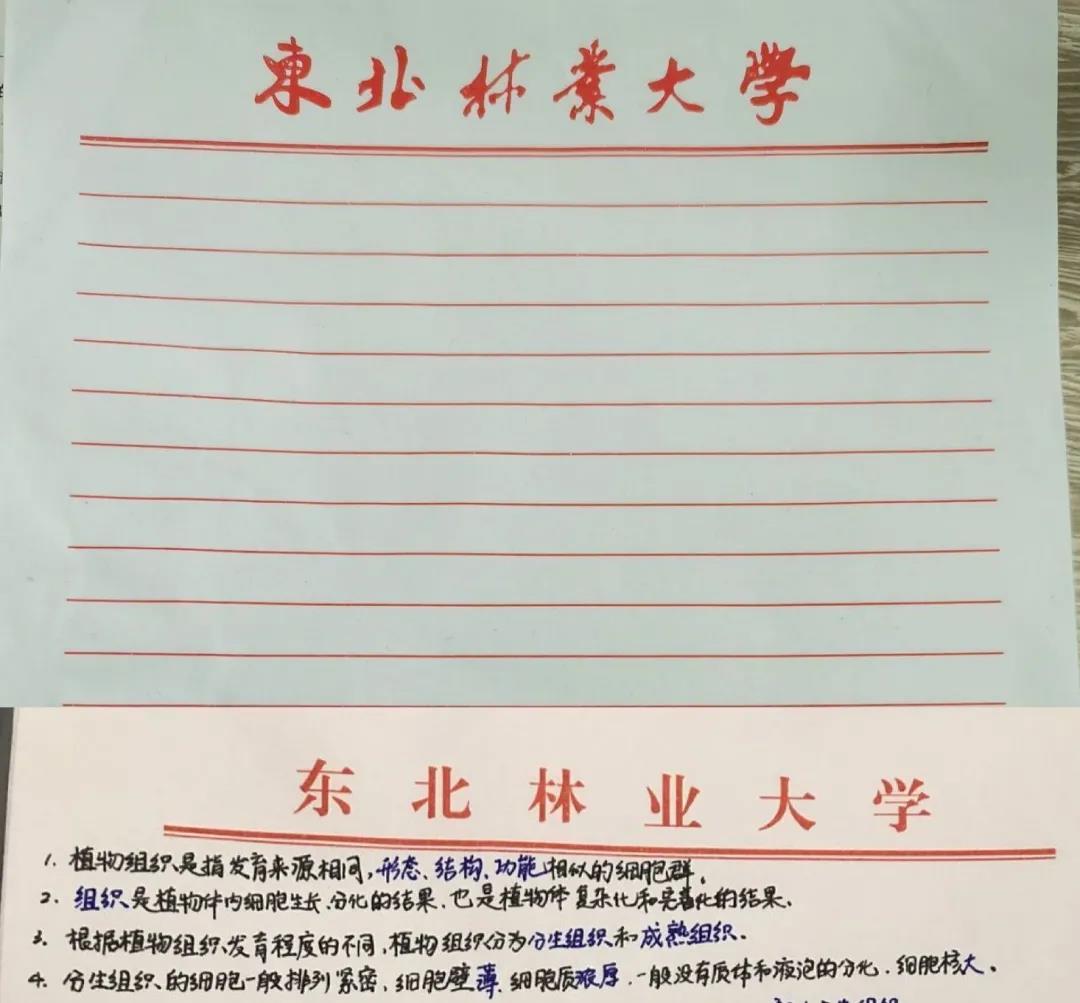 東北林業大学
东北林业大学
1. 植物组织是指发育来源相同,形态、结构、功能相似的细胞群。
2. 组织是植物体内细胞生长、分化的结果,也是植物体复杂化和完善化的结果.
3. 根据植物组织发育程度的不同,植物组织分为分生组织和成熟组织.
4. 分生组织的细胞一般排列紧密,细胞壁薄,细胞质浓厚,一般没有质体和液泡的分化.细胞核大.